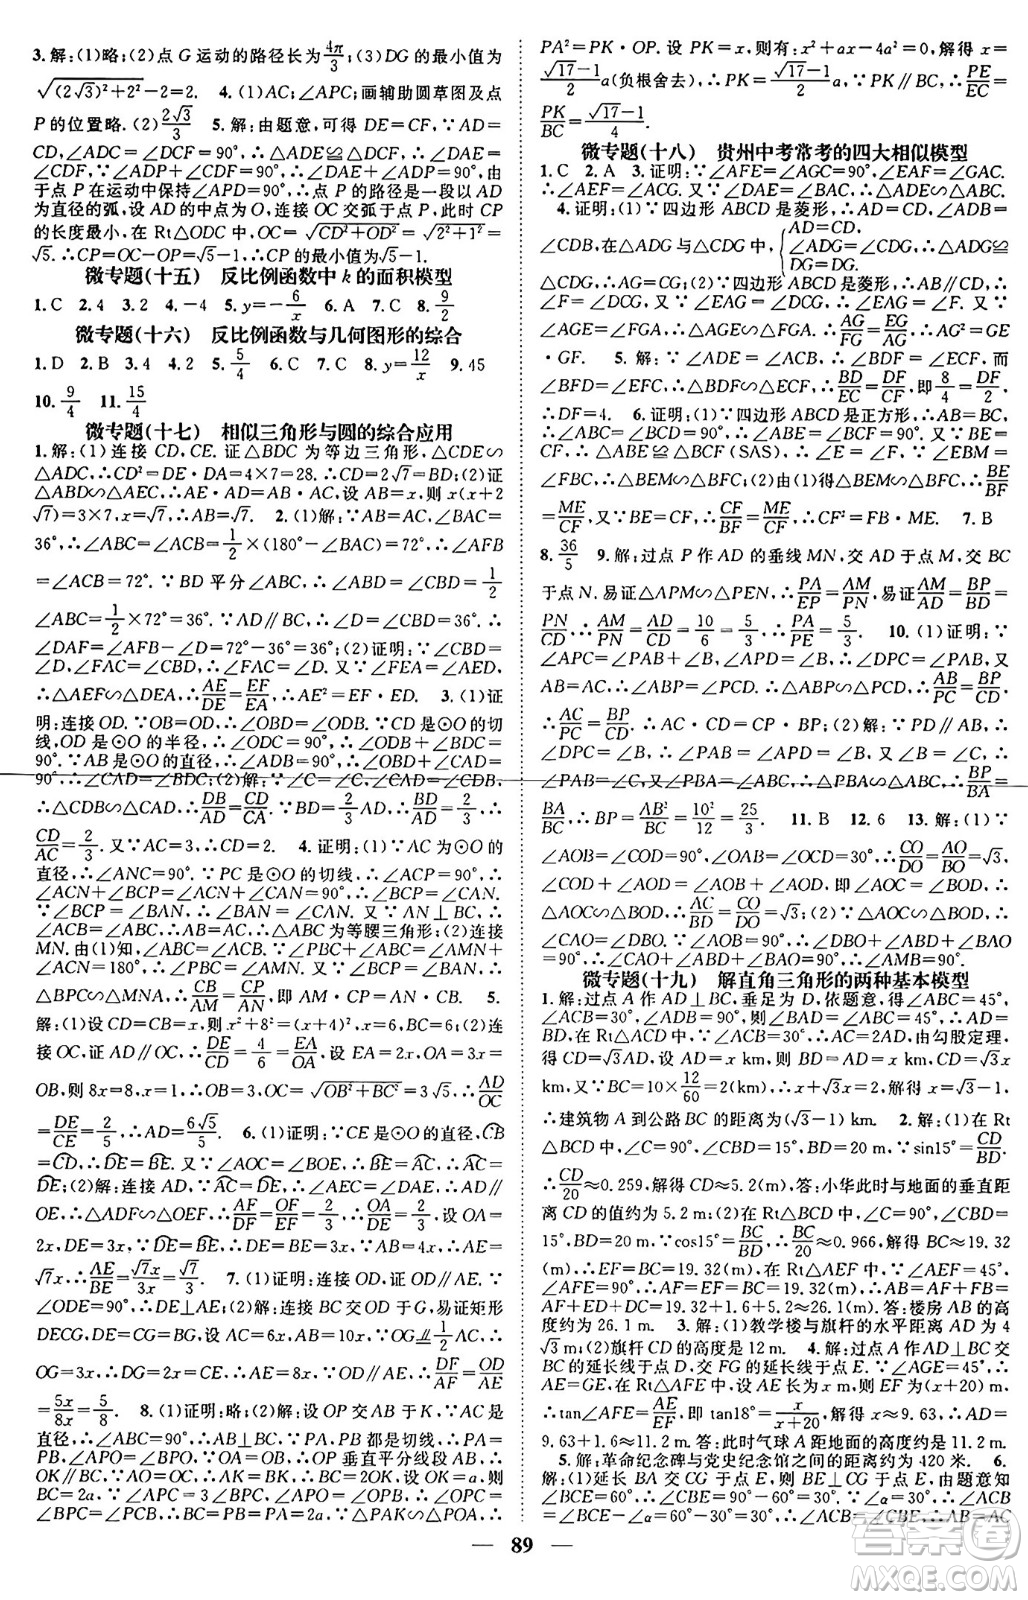 3.解:(1)略;(2)点 G 运动的路径长为4π/3;(3)DG 的最小值为
√((2√3)²+2²)-2=2. 4.(1)AC;∠APC;画辅助圆草图及点
P 的位置略.(2)2√3/3 5.解:由题意,可得 DE=CF,∵AD=
CD,∠ADC=∠DCF=90°,∴△ADE≌△DCF,∴∠DAE=
∠CDF,∵∠ADF+∠CDF=90°,∴∠ADF+∠DAE=90°,由
于点 P 在运动中保持∠APD=90°,∴点 P 的路径是一段以 AD
为直径的弧,设 AD 的中点为 O,连接 OC 交弧于点 P,此时 CP
的长度最小,在 Rt△ODC 中,OC=√(CD²+OD²)=√(2²+1²)=
√5,∴CP=OC-OP=√5-1,∴CP 的最小值为√5-1.
微专题(十五) 反比例函数中 k 的面积模型
1.C 2.4 3.2 4.-4 5.y=-6/x 6.A 7.C 8.9/2
微专题(十六) 反比例函数与几何图形的综合
1.D 2.B 3.4 4.2 5.5/4 6.C 7.C 8.y=12/x 9.45
10.9/4 11.15/4
微专题(十七) 相似三角形与圆的综合应用
1.解:(1)连接 CD,CE.证△BDC 为等边三角形,△CDE∽
△ADC,∴CD²=DE·DA=4×7=28.∴CD=2√7=BD;(2)证
△ABD∽△AEC,∴AB·AC=AD·AE,设 AB=x,则 x(x+2
√7)=3×7,x=√7,∴AB=√7. 2.(1)解:∵AB=AC,∠BAC=
36°,∴∠ABC=∠ACB=1/2×(180°-∠BAC)=72°,∴∠AFB
=∠ACB=72°.∵BD 平分∠ABC,∴∠ABC=∠CBD=1/2
∠ABC=1/2×72°=36°.∵AD∥BC,∴∠D=∠CBD=36°,∴
∠DAF=∠AFB-∠D=72°-36°=36°;(2)证明:∵∠CBD=
∠D,∠CAF=∠CBD,∴∠CAF=∠D.又∵∠AEF=∠AED,
∴△AEF∽△DEA,∴AE/DE=EF/EA,∴AE²=EF·ED. 3.(1)证
明:连接 OD.∵OB=OD,∴∠OBD=∠ODB.∵CD 是⊙O 的切
线,OD 是⊙O 的半径,∴∠ODC=90°,∴∠CDB+∠ODB=
90°.∵AB 是⊙O 的直径,∴∠ADB=90°,∴∠CAD+∠ABD=
90°,∴∠CAD=∠BDC;(2)解:∵∠C=∠C,∠CAD=∠CDB,
∴△CDB∽△CAD,∴DB/AD=CD/CA.∵BD=2/3AD,∴BD/AD=2/3,∴
CD/AC=2/3.又∵AC=3,∴CD=2. 4.证明:(1)∵AC 为⊙O 的
直径,∴∠ANC=90°.∵PC 是⊙O 的切线,∴∠BCP+∠ACN=
∠ACN+∠BCP=∠ACN+∠CAN=90°,∴∠BCP=∠CAN.
∵∠BCP=∠BAN,∴∠BAN=∠CAN.又∵AN⊥BC,∴
∠ABC=∠ACB,∴AB=AC,∴△ABC 为等腰三角形;(2)连接
MN.由(1)知,∠ABC=∠ACB.∵∠PBC+∠ABC=∠AMN+
∠ACN=180°,∴∠PBC=∠AMN.由(1)知∠BCP=∠BAN,
∴△BPC∽△MNA,∴CB/AM=CP/AN,∴AM·CP=AN·CB. 5.
解:(1)设 CD=CB=x,∵BC²+BE²=CE²,∴x²+8²=(x+4)²,∴x=6,即 CD=6;(2)连
接 OC,证 AD∥OC,∴DE/CD=4/6=EA/OA,设 EA=2x,OA=3x=
OB,则 8x=8,x=1,∴OB=3,OC=√(OB²+BC²)=3√5,AD/OC
=DE/CE=2/5,∴AD=6√5/5. 6.(1)证明:∵CE 是⊙O 的直径,CB
=CD,∴DE=BE,∴∠AOC=∠BOE,∴BE=AC,∴AC=
DE;(2)解:连接 AD,∵AC=DE,∴∠AEC=∠DAE,∴AD∥
OE,∴△ADF∽△OEF,∴AF/DF=OF/EF=2/3,∴AF=2/3DF.设 OA=
2x,则 OE=2x,AB=4x,∵BE=DE=AC,∴BE=3x,∴AE=
√7x,∴AE/BE=√7x/3x=√7/3. 7.(1)证明:连接 OD.证 OD∥AE,∵
∠ODE=90°,∴DE⊥AE;(2)解:连接 BC 交 OD 于 G,易证矩形
DECG,DE=CG=BG,设 AC=6x,AB=10x,∵OG⊥1/2AC,∴
OG=3x,∴DG=CE=2x,∴AE=8x,∵OD∥AE,∴DF/AF=OD/AE=
5x/8x=5/8. 8.(1)证明:略;(2)解:设 OP 交 AB 于 K,∵AC 是
直径,∴∠ABC=90°,∴AB⊥BC,∵PA,PB 都是切线,∴PA=
PB,∠APO=∠BPO,∵OA=OB,∴OP 垂直平分线段 AB,∴
OK∥BC,∵AO=OC,∴AK=BK,∴BC=2OK,设 OK=a,则
BC=2a,∵∠APC=3∠BPC,∠APO=∠OPB,∴∠OPC=
∠BPC=∠PCB,∴BC=PB=PA=2a,∵△PAK∽△POA,∴
PA²=PK·OP.设 PK=x,则有:x²+ax-4a²=0,解得 x=
(√17-1)/2 a(负根舍去),∴PK=(√17-1)/2 a,∵PK∥BC,∴PE/EC=
PK/BC=(√17-1)/4.
微专题(十八) 贵州中考常考的四大相似模型
1.C 2.A 3.证明:∵∠AFE=∠AGC=90°,∠EAF=∠GAC.
∴∠AEF=∠ACG.又∵∠DAE=∠BAC,∴△ADE∽△ABC.
4.证明:(1)∵四边形 ABCD 是菱形,∴AD=CD,∠ADB=
∠CDB,在△ADG 与△CDG 中,{AD=CD,∠ADG=∠CDG,DG=DG.∴△ADG≌
△CDG(SAS),∴AG=CG;(2)∵四边形 ABCD 是菱形,∴
∠F=∠FCD,又∵△ADG≌△CDG,∴∠EAG=∠DCG,∴
∠AGE=∠FGA,∴△AEG∽△FAG,∴AG/FG=EG/AG,∴AG²=GE
·GF. 5.解:∵∠ADE=∠ADF+∠BDF=∠ACE,而
∠BFD=∠CFE,∴△BDF∽△CEF,∴BD/EC=DF/CF,即8/4=DF/2,
∴DF=4. 6.证明:(1)∵四边形 ABCD 是正方形,∴AB=BC,
∴△ABE≌△BCF(SAS),∴∠BAE=∠CBF,∵∠EBM=
∠BCF,∴△BEM∽△BFC;(2)由(1)得△BEM∽△BFC,∴BE/BF=
ME/CF,又∵BE=CF,∴CF/BF=ME/CF,∴CF²=FB·ME. 7.B
8.36/5 9.解:过点 P 作 AD 的垂线 MN,交 AD 于点 M,交 BC
于点 N.易证△APM∽△PEN,∴PA/EP=AM/PN,易证AM/AD=BP/BD=
PN/CD.∴AM/PN=AD/CD=10/6=5/3,∴PA/PE=5/3. 10.(1)证明:∵
∠APC=∠PAB+∠B,∠APD=∠B,∴∠DPC=∠PAB,又
∵AB=AC,∴∠ABP=∠PCD,∴△ABP∽△PCD,∴AB/PC=BP/CD.
∴AC/PC=BP/CD.∴AC·CD=CP·BP;(2)解:∵PD∥AB,∴
∠DPC=∠B,∴∠PAB=∠B,又∵∠B=∠C,∴
∠PAB=∠C,又∠PBA=∠ABC,∴△PBA∽△ABC,∴BP/BA=
BA/BC,∴BP=AB²/BC=10²/12=25/3. 11.B 12.6 13.解:(1)∵
∠AOB=∠COD=90°,∠OAB=∠OCD=30°,∴CO/DO=AO/BO=√3,
∠COD+∠AOD=∠AOB+∠AOD,即∠AOC=∠BOD,
∴△AOC∽△BOD,∴AC/BD=CO/DO=√3;(2)∵△AOC∽△BOD,∴
∠CAO=∠DBO.∵∠DBO+∠OAB=90°,∴∠DAB=90°.
微专题(十九) 解直角三角形的两种基本模型
1.解:过点 A 作 AD⊥BC,垂足为 D,依题意,得∠ABC=45°,
BD=AD,在 Rt△ADC 中,∵∠ACB=30°,∴AC=2AD,由勾股定理,
得 CD=√3AD,设 AD=x km,则 BD=AD=x km,CD=√3x
km,又∵BC=10×12/60=2(km),∴x+√3x=2,解得 x=√3-1,
∴建筑物 A 到公路 BC 的距离为(√3-1) km. 2.解:(1)在 Rt
△BCD 中,∠C=90°,∠CBD=15°,BD=20,∵sin15°=CD/BD,
∴CD/20≈0.259,解得 CD≈5.2(m).答:小华此时与地面的垂直距
离 CD 的值为 5.2 m;(2)在 Rt△BCD 中,∠C=90°,∠CBD=
15°,BD=20 m,∵cos15°=BC/BD,∴BC/20≈0.966,解得 BC≈19.32
(m),∴EF=BC=19.32,在 Rt△AEF 中,∠AEF=45°,
∠AFE=90°,∴AF=EF=19.32,∴AB=AF+FB=
AF+ED+CD=19.32+1.6+5.2≈26.1(m).答:楼房 AB 的高度约
为 26.1 m. 3.解:(1)教学楼与旗杆的水平距离 AD 为 4
√3 m;(2)旗杆 CD 的高度是 12 m. 4.解:过点 A 作 AD⊥BC 交
BC 的延长线于点 D,交 FG 的延长线于点 E.∵∠AGE=45°,∴
AE=GE.在 Rt△AFE 中,设 AE=x,则 FE=(x+20),
∴tan∠AFE=AE/EF,即 tan18°=x/(x+20),解得 x≈9.63,∴AD=
9.63+1.6≈11.2 m.答:此时气球 A 距地面的高度约是 11.2 m.
5.解:革命纪念碑与党史纪念馆之间的距离约为 420 米. 6.
解:(1)延长 BA 交 CG 于点 E,则 BE⊥CG 于 E,由题意知
∠CBE=∠α=60°,在 Rt△BCE 中,∠α=60°,∴∠ACB
=∠BCE-∠α=60°-30°=30°,∴∠ACB=∠CBE,∴AB=AC,
89
答案圈
MXQE.COM